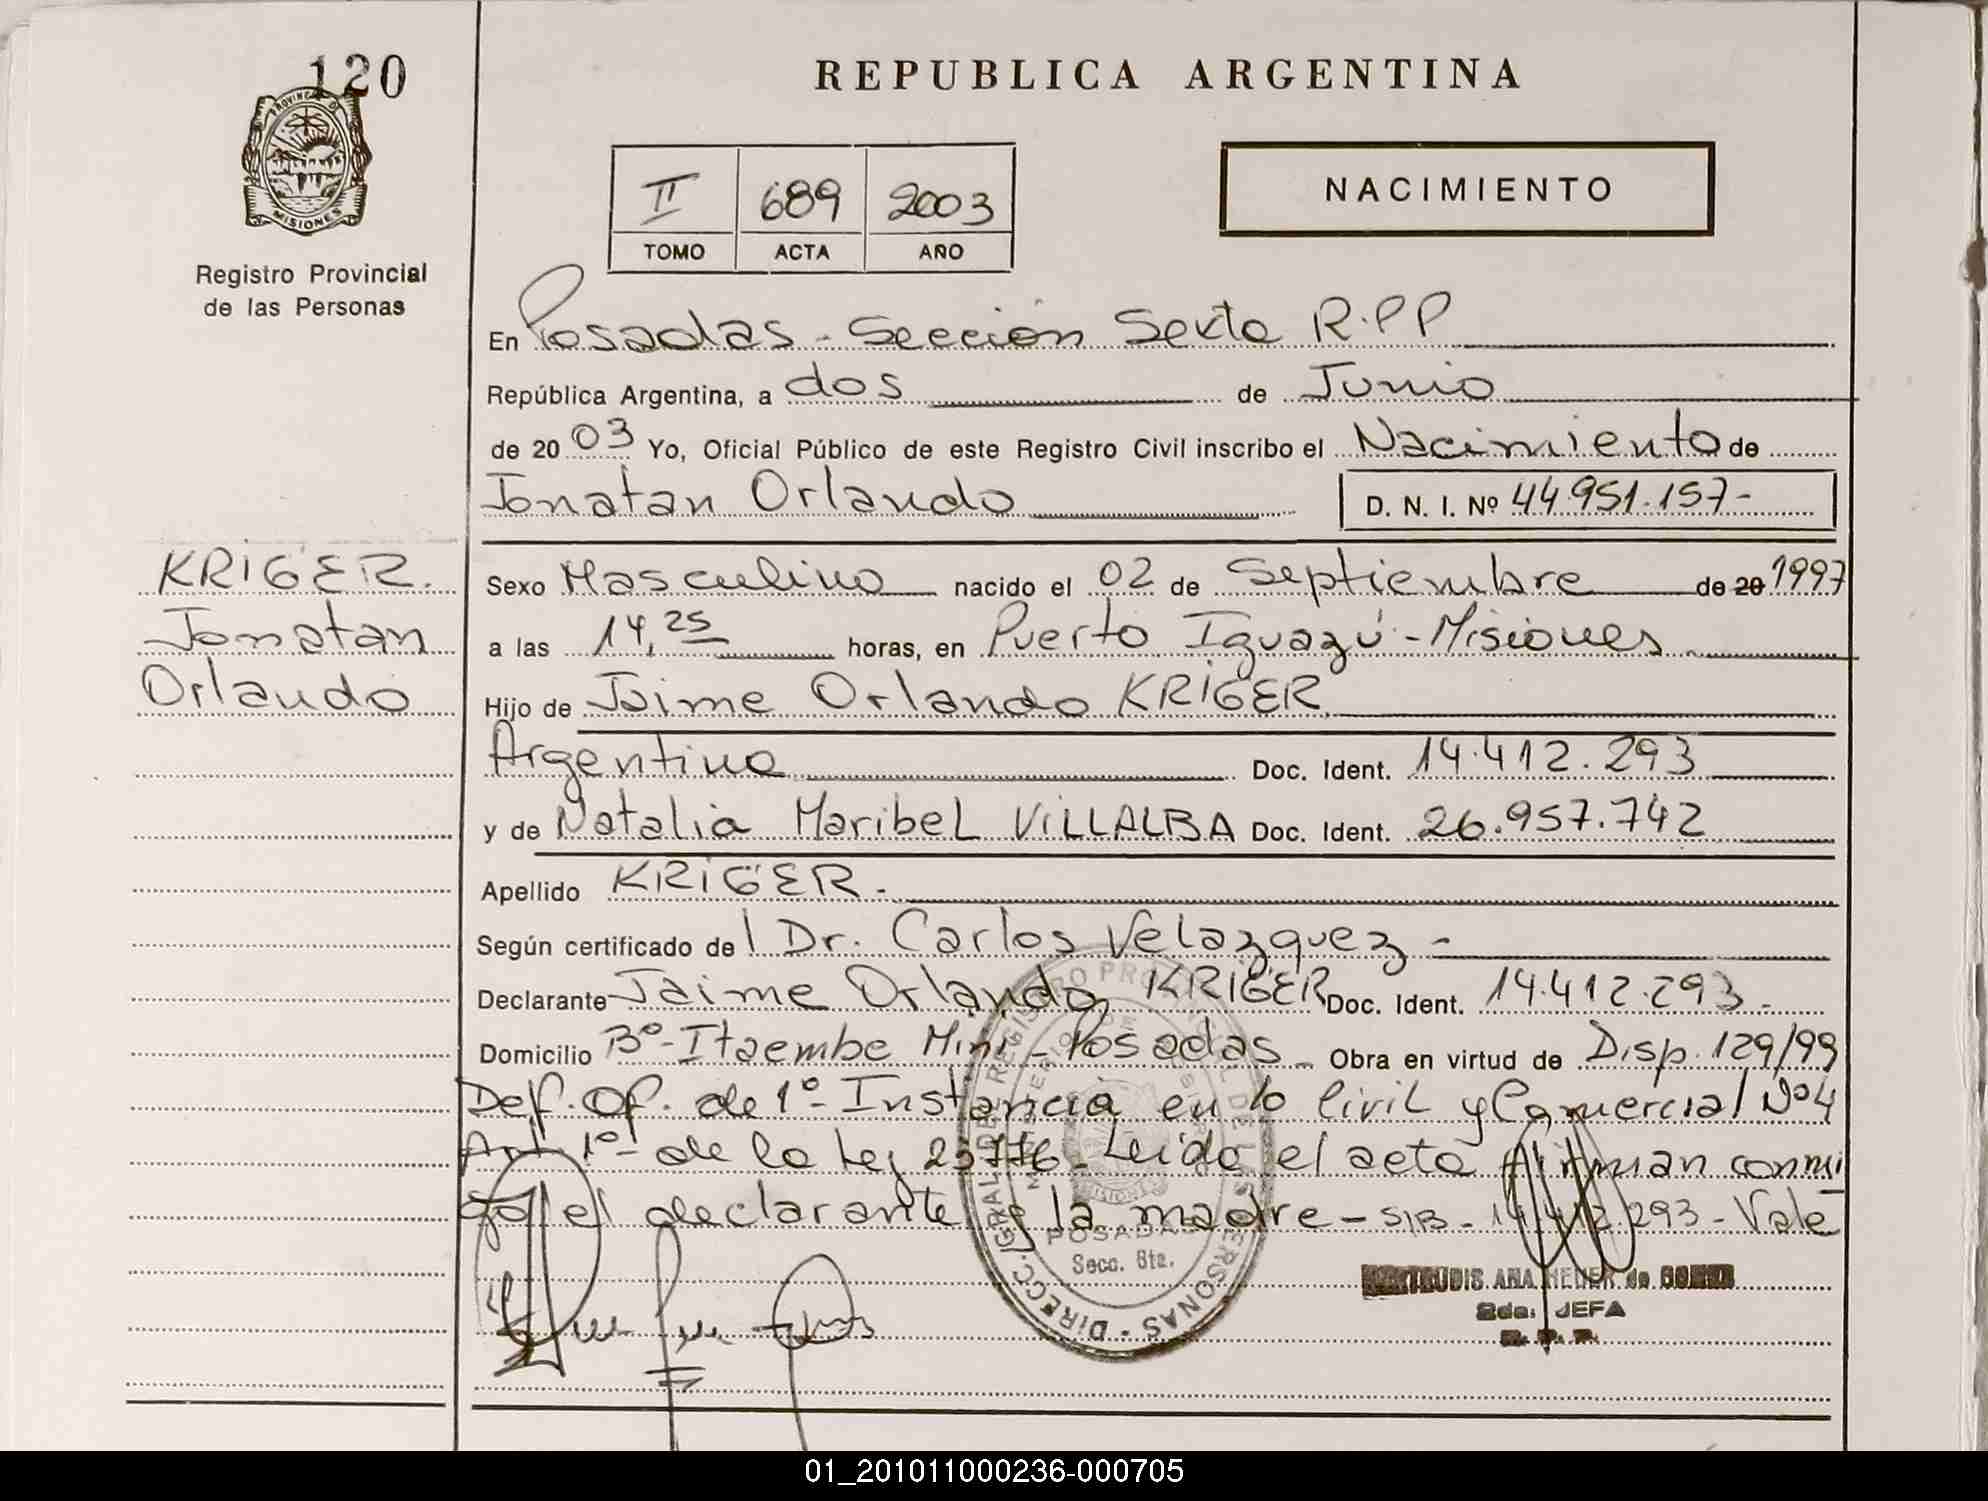 120
PROVINCIA DE
MISIONES
Registro Provincial
de las Personas
REPUBLICA ARGENTINA
II 689 2003
TOMO ACTA AÑO
NACIMIENTO
En Posadas - Sección Sexta R.P.P
República Argentina, a dos de Junio
de 2003 Yo, Oficial Público de este Registro Civil inscribo el Nacimiento de
Jonatan Orlando D. N. I. Nº 44.951.157-
KRIGER.
Jonatan
Orlando
Sexo Masculino nacido el 02 de Septiembre de 20 1997
a las 14,25 horas, en Puerto Iguazú - Misiones
Hijo de Jaime Orlando KRIGER
Argentino Doc. Ident. 14.412.293
y de Natalia Maribel VILLALBA Doc. Ident. 26.957.742
Apellido KRIGER.-
Según certificado del Dr. Carlos Velazquez -
Declarante Jaime Orlando KRIGER Doc. Ident. 14.412.293.-
Domicilio Bº-Itaembe Mini - Posadas Obra en virtud de Disp. 129/99
Def. Of. de 1º- Instancia en lo Civil y Comercial Nº4
Art. 1º- de la Ley 25776- Leida el acta firman conmi
go el declarante y la madre - S/B - 14.412.293 - Vale
POSADAS
Secc. 6ta.
2da. JEFA
R. P. P.
01_201011000236-000705